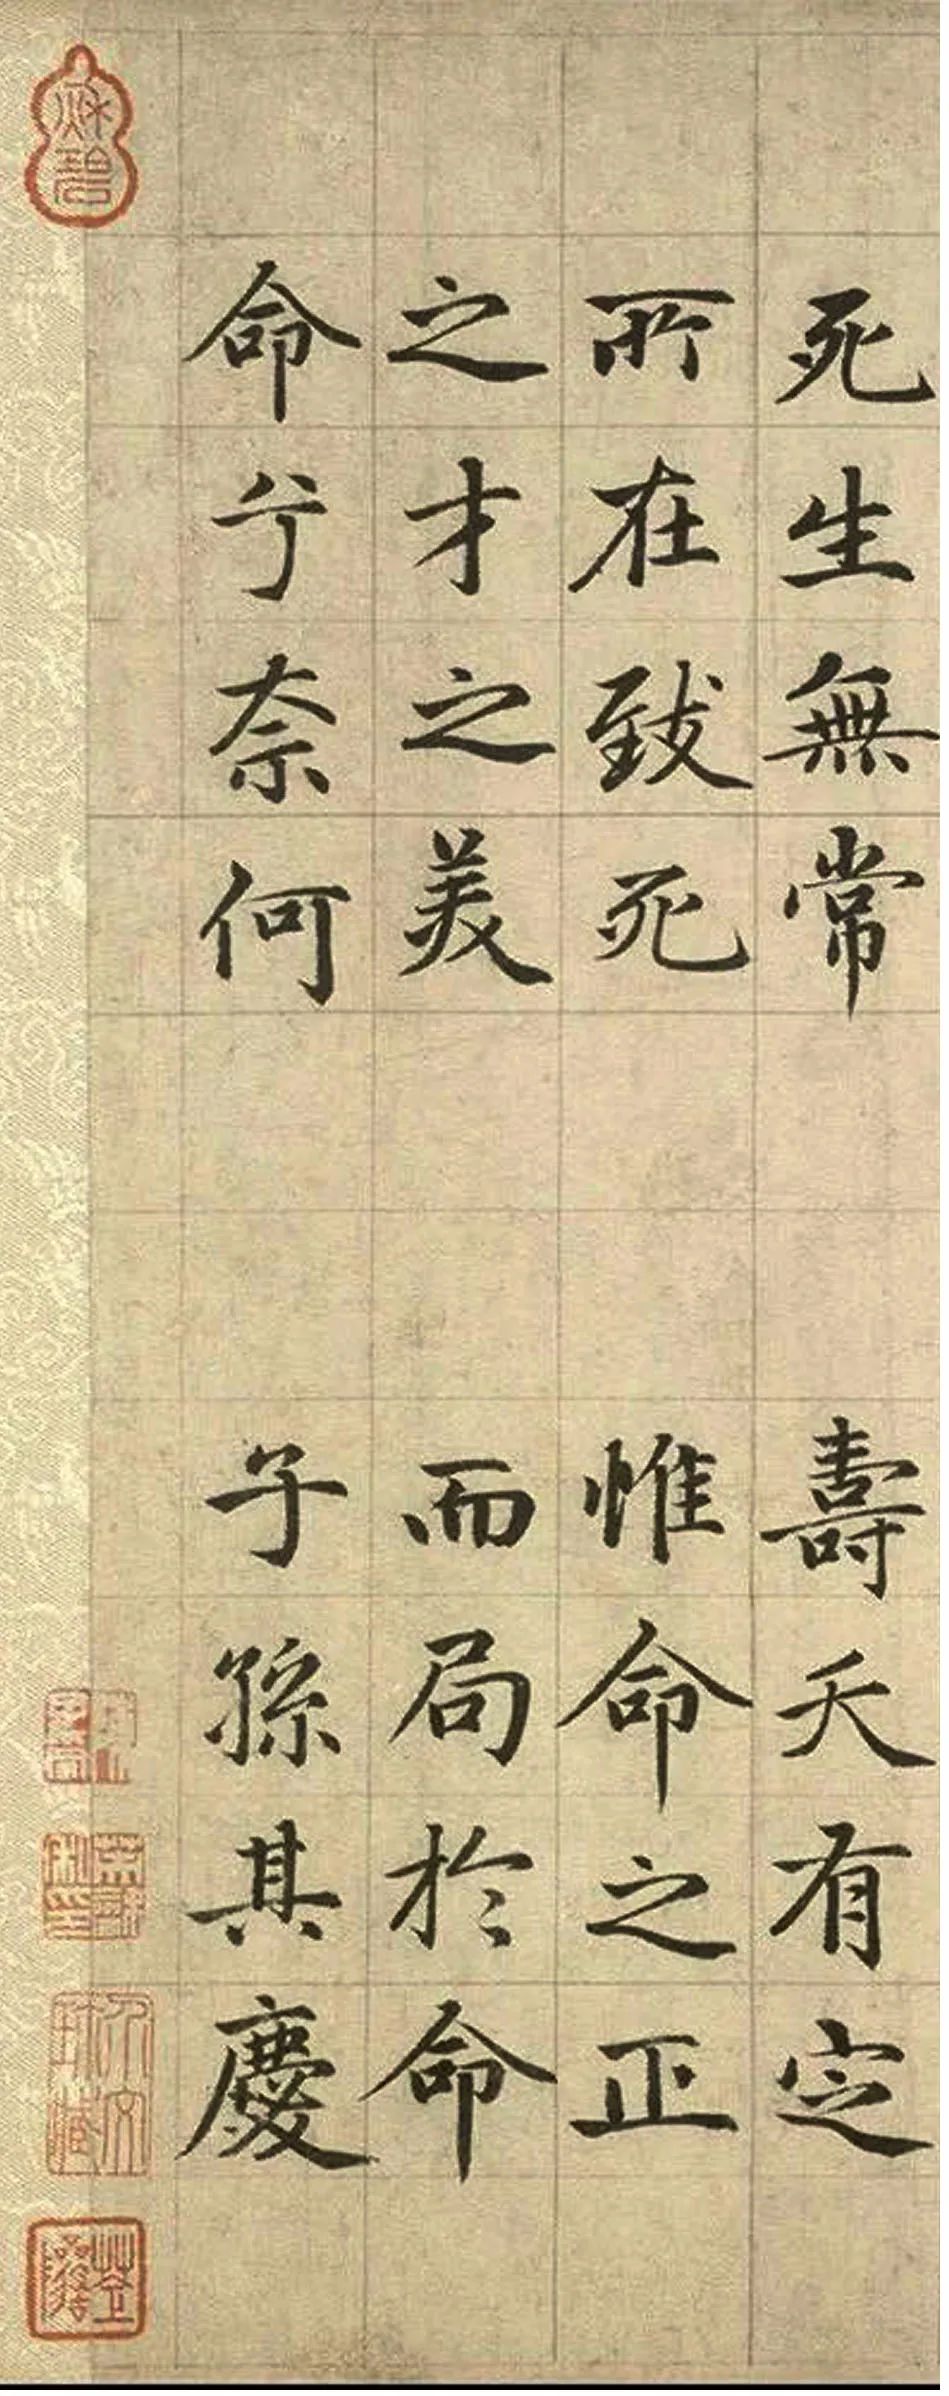 死生無常 壽夭有定
所在致死 惟命之正
之才之美 而局於命
命兮奈何 子孫其慶
秋碧